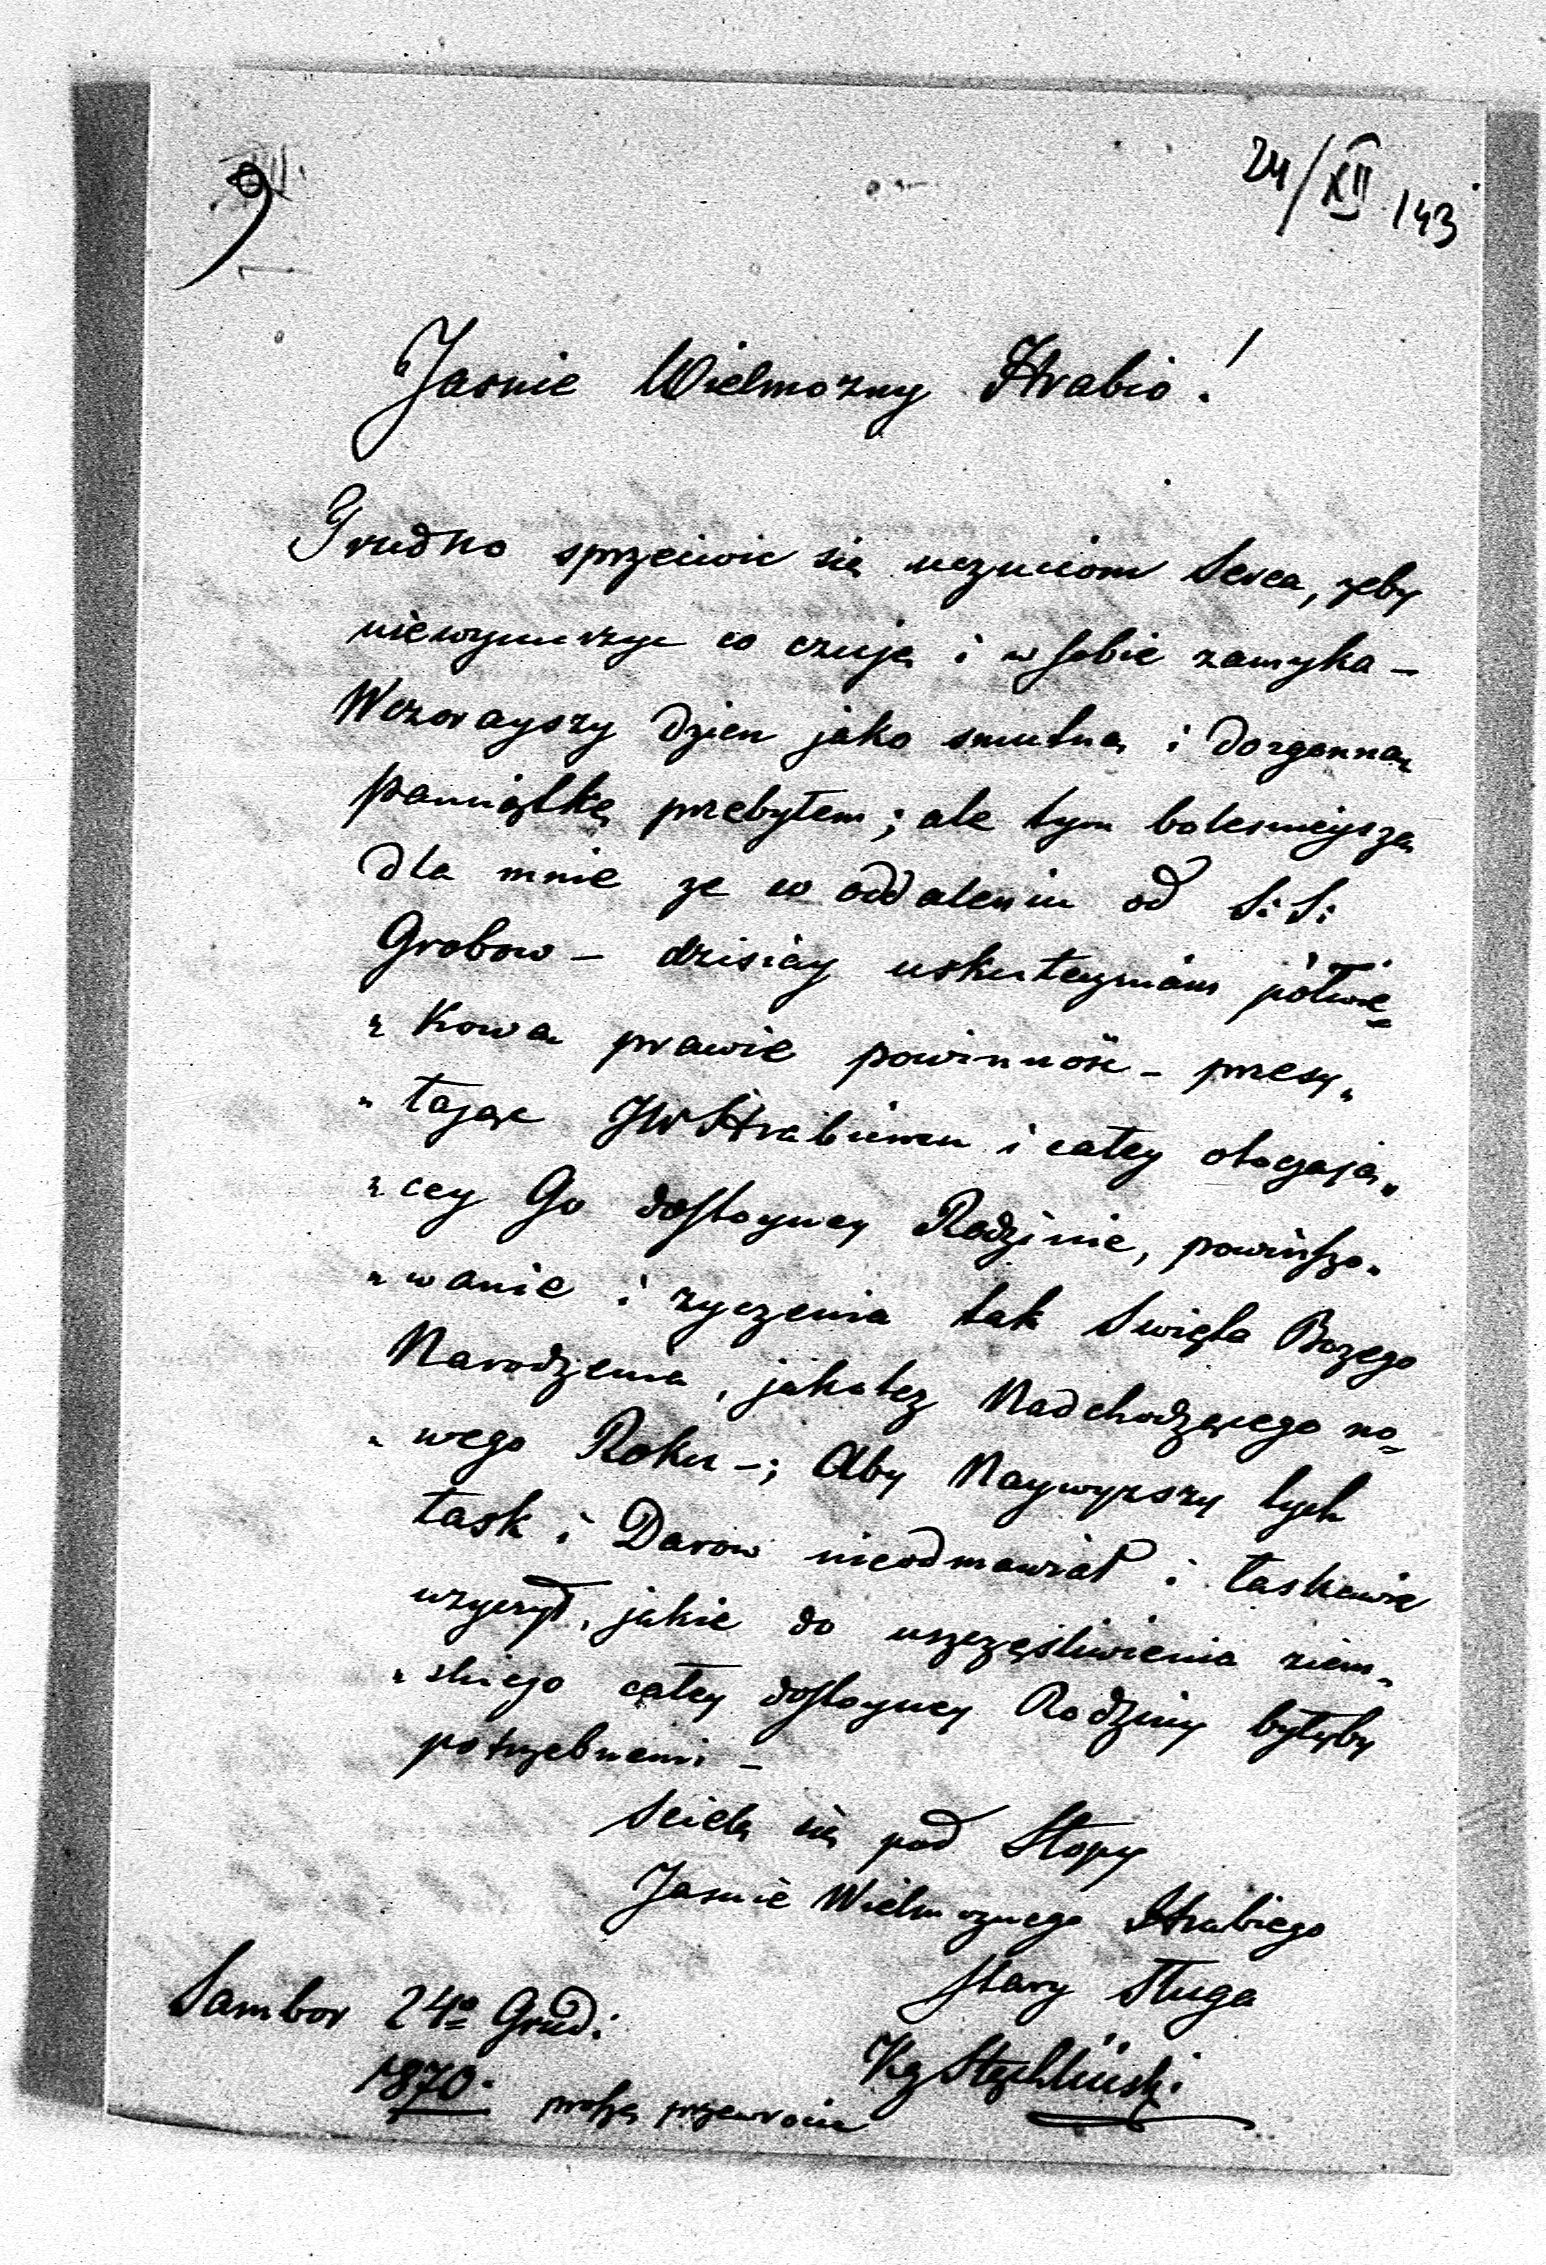 9
24/XII 143
Jasnie Wielmozny Hrabio!
Trudno sprzeciwic się uczuciom Serca, zeby
niewynurzyc co czuję i w sobie zamyka –
Wczorayszy dzien jako smutną i dozgonną
pamiątkę przebyłem; ale tym bolesnieyszą
dla mnie ze w oddaleniu od S: S:
Grobow – dzisiay uskuteczniam pòłwie=
„kową prawie powinnośc – przesy„
„łając JW Hrabiemu i całey otaczają„
„cey Go dostoyney Rodzinie, powinszo„
„wanie i zyczenia tak Swięta Bozego
Narodzenia, jakotez Nadchodzącego no=
„wego Roku –; Aby Naywyzszy tych
łask i Darow nieodmawiał i łaskawie
uzyczył, jakie do uszczęśliwienia ziem„
„skiego całey dostoyney Rodziny byłyby
potrzebnemi –
Scielę się pod Stopy
Jasnie Wielmoznego Hrabiego
Stary Sługa
Sambor 24º Grud:
1870.
proszę przewrocic